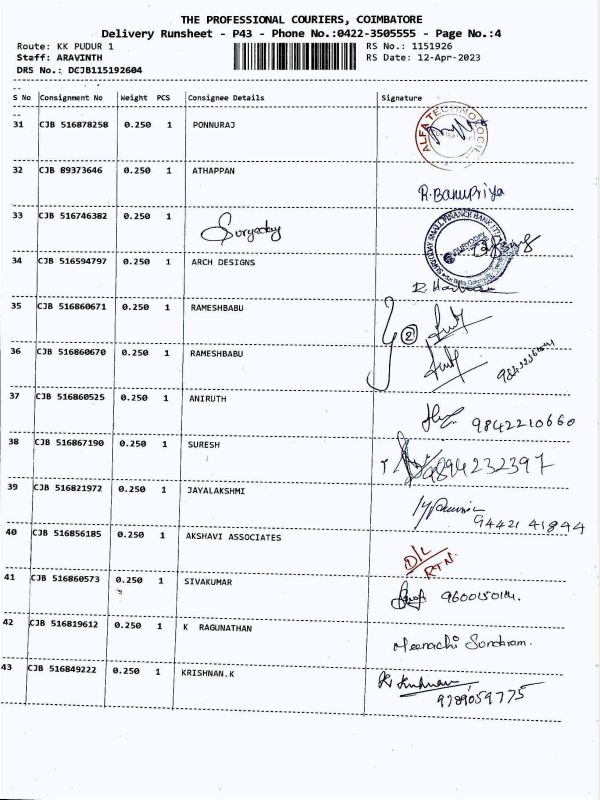 THE PROFESSIONAL COURIERS, COIMBATORE
Delivery Runsheet - P43 - Phone No.:0422-3505555 - Page No.:4
Route: KK PUDUR 1 RS No.: 1151926
Staff: ARAVINTH RS Date: 12-Apr-2023
DRS No.: DCJB115192604
S No Consignment No Weight PCS Consignee Details Signature
31 CJB 516878258 0.250 1 PONNURAJ
32 CJB 89373646 0.250 1 ATHAPPAN R.Banupriya
33 CJB 516746382 0.250 1 Suryoday
34 CJB 516594797 0.250 1 ARCH DESIGNS
35 CJB 516860671 0.250 1 RAMESHBABU
2
36 CJB 516860670 0.250 1 RAMESHBABU
37 CJB 516860525 0.250 1 ANIRUTH 9842210660
38 CJB 516867190 0.250 1 SURESH 9894232397
39 CJB 516821972 0.250 1 JAYALAKSHMI
94421 41844
40 CJB 516856185 0.250 1 AKSHAVI ASSOCIATES D/L
RTN.
41 CJB 516860573 0.250 1 SIVAKUMAR
42 CJB 516819612 0.250 1 K RAGUNATHAN Meenachi Sundaram.
43 CJB 516849222 0.250 1 KRISHNAN.K
9789059775